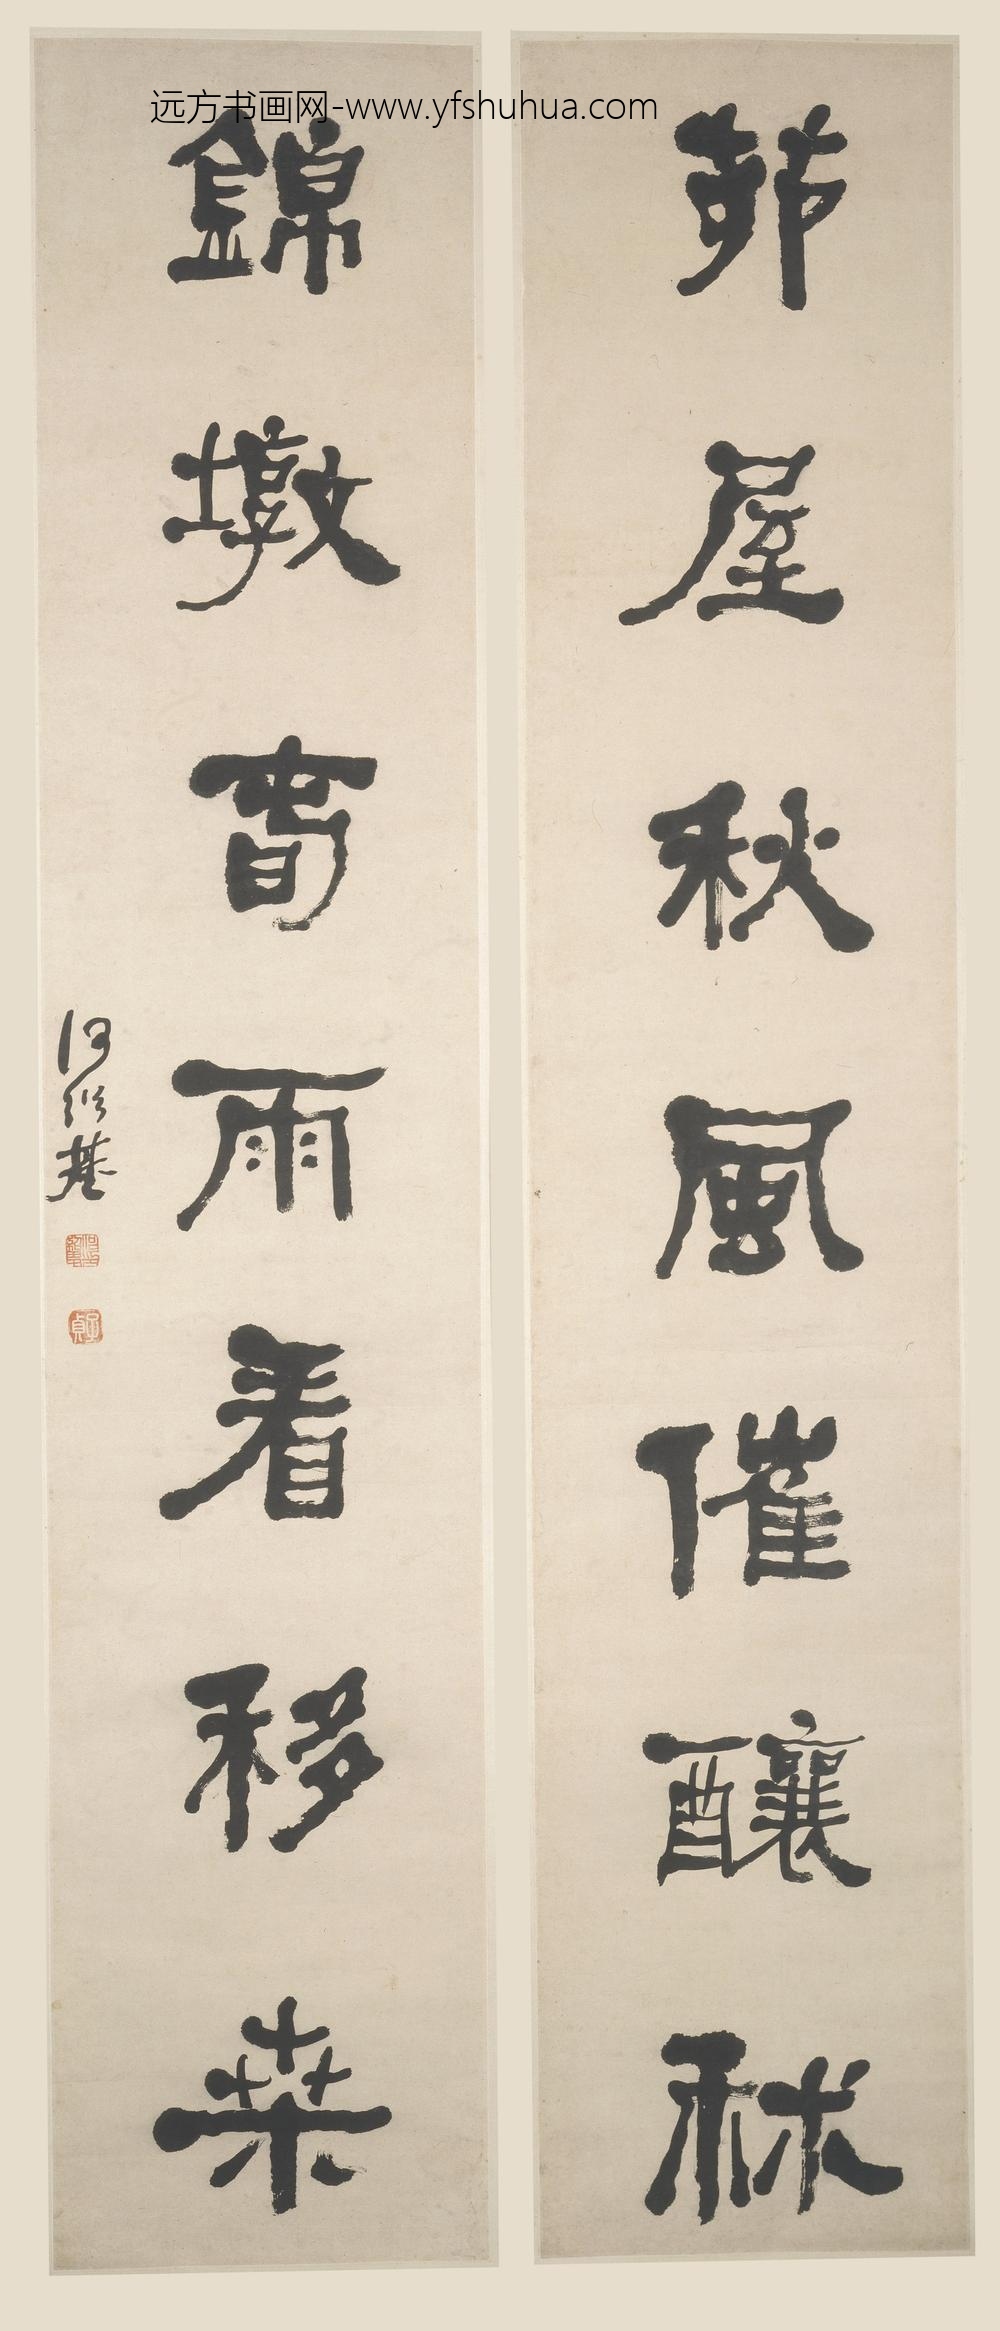 远方书画网-www.yfshuhua.com
茆屋秋風催釀秫
錦墩旾雨看移桒
何紹基
子貞